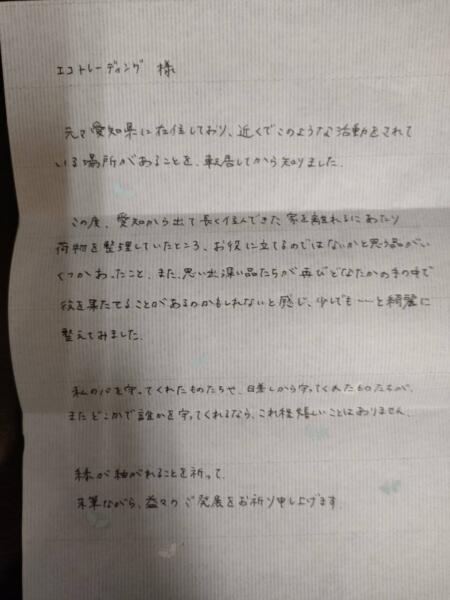 エコトレーディング 様
元々愛知県に在住しており、近くでこのような活動をされて
いる場所があることを、転居してから知りました。
この度、愛知から出て長く住んできた家を離れるにあたり
荷物を整理していたところ、お役に立てるのではないかと思う品がい
くつかあったこと、また、思い出深い品たちが再びどなたかの手の中で
役を果たせることがあるのかもしれないと感じ、少しでも…と綺麗に
整えてみました。
私の心を守ってくれたものたちや、日差しから守ってくれたものたちが、
またどこかで誰かを守ってくれるなら、これ程嬉しいことはありません。
縁が紬がれることを祈って、
末筆ながら、益々のご発展をお祈り申し上げます。